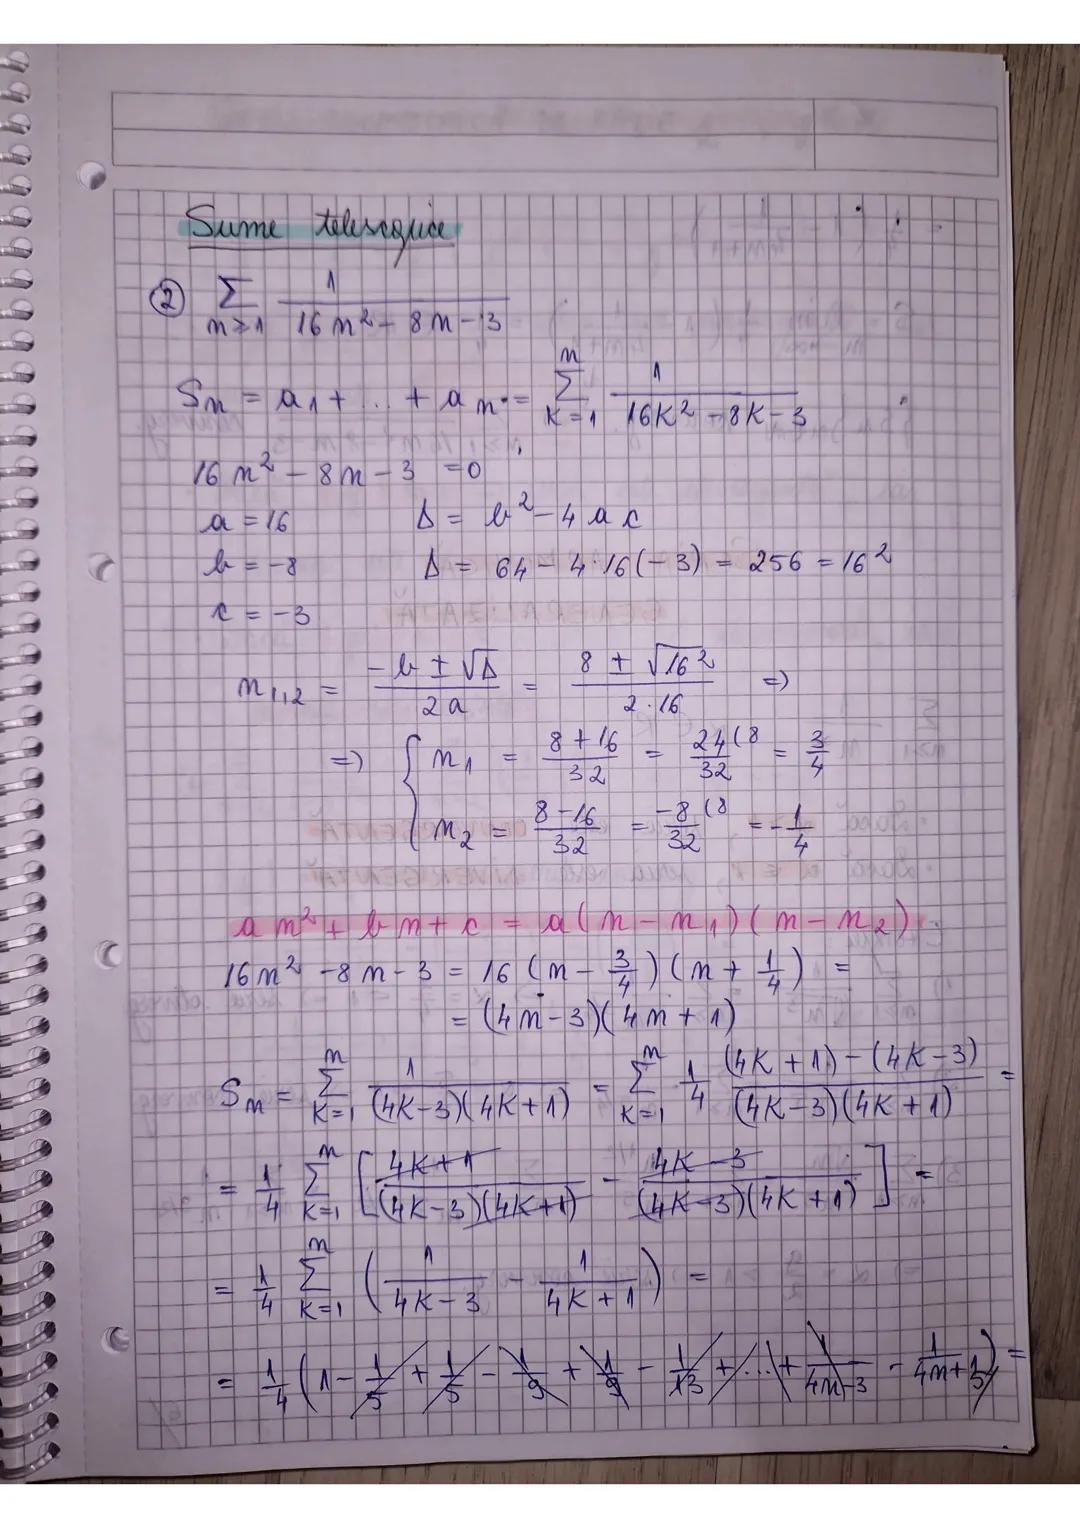 Sume telescopice
② Σ_{n≥1} 1/(16n² - 8n - 3)
S_n = a_1 + ... + a_n = Σ_{K=1}^{n} 1/(16K² - 8K - 3)
16n² - 8n - 3 = 0
a = 16 Δ = b² - 4ac
b = -8 Δ = 64 - 4·16(-3) = 256 = 16²
c = -3
n_{1,2} = (-b ± √Δ)/(2a) = (8 ± √16²)/(2·16) =)
=) { n_1 = (8+16)/32 = 24/32 (8 = 3/4
n_2 = (8-16)/32 = -8/32 (8 = -1/4
an² + bn + c = a(n - n_1)(n - n_2)
16n² - 8n - 3 = 16(n - 3/4)(n + 1/4) =
= (4n-3)(4n+1)
S_n = Σ_{K=1}^{n} 1/((4K-3)(4K+1)) = Σ_{K=1}^{n} 1/4 ((4K+1)-(4K-3))/((4K-3)(4K+1)) =
= 1/4 Σ_{K=1}^{n} [(4K+1)/((4K-3)(4K+1)) - (4K-3)/((4K-3)(4K+1))] =
= 1/4 Σ_{K=1}^{n} (1/(4K-3) - 1/(4K+1)) =
= 1/4 (1 - 1/5 + 1/5 - 1/9 + 1/9 - 1/13 + ... + 1/(4n-3) - 1/(4n+1)) =